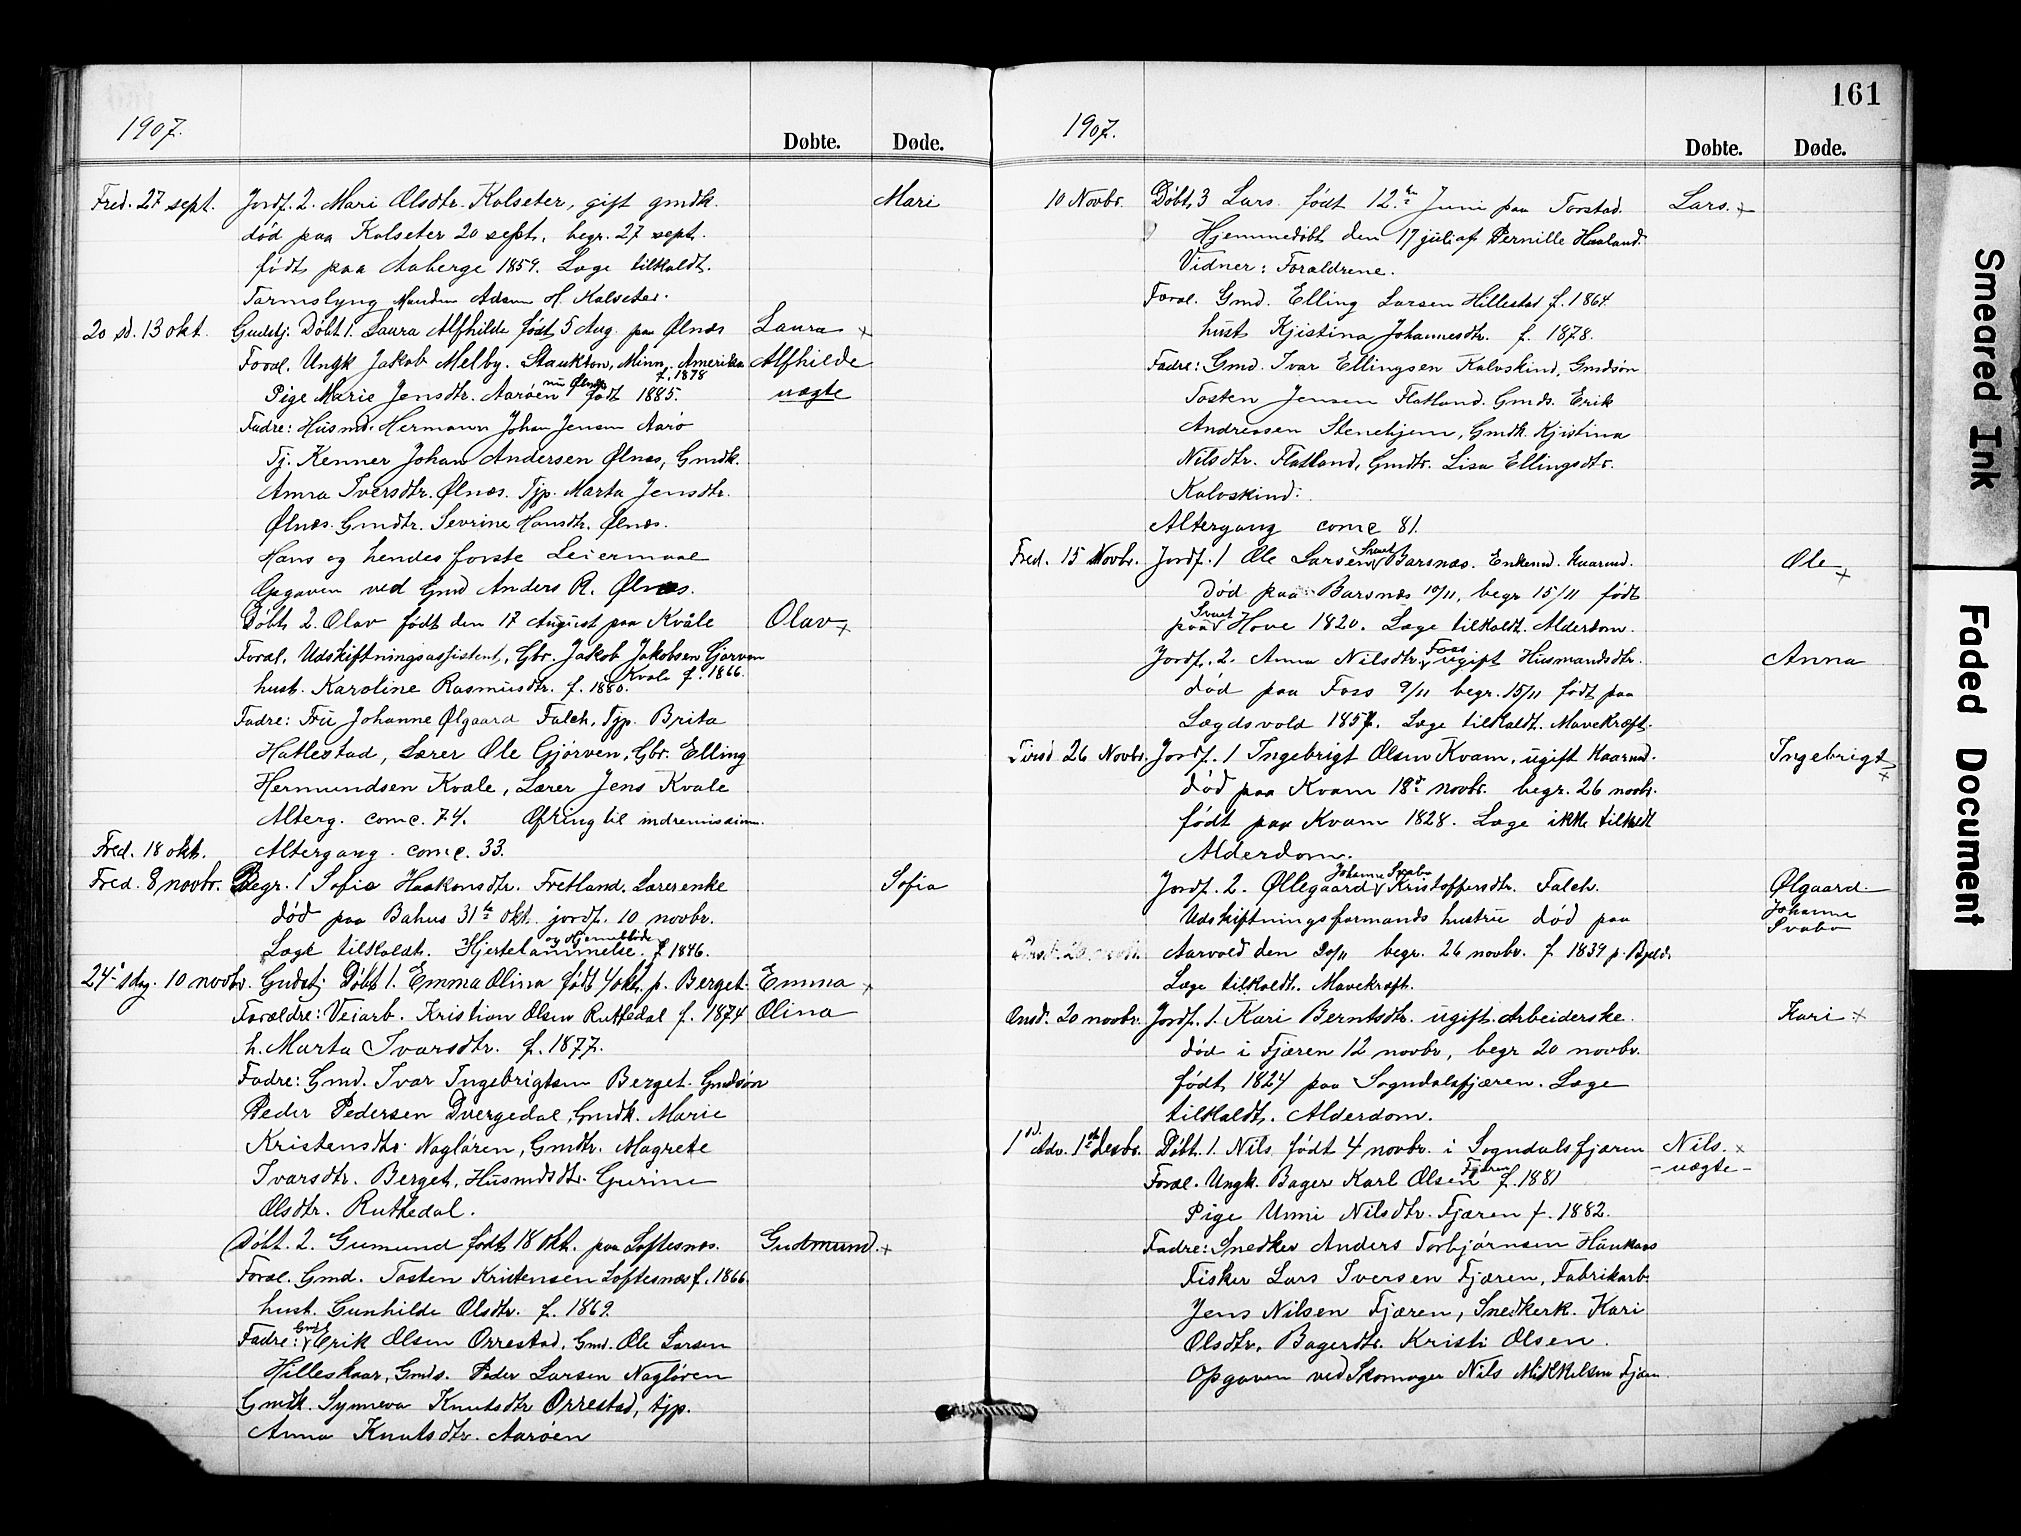 1907.
Døbte.
Døde.
Fred. 27 sept.
Jordf. 2. Mari Olsdtr. Kolseter, gift gmdk.
Mari
død paa Kolseter 20 sept. begr. 27 sept.
født paa Aaberge 1859. Læge tilkaldt.
Tarmslyng Manden Adam H. Kolseter.
20 sd. 13 okt.
Gudstj. Døbt 1. Laura Alfhilde født 5 Aug. paa Ølnæs
Laura +
Foræl. Ungk Jakob Melby. Stankton, Minn. Amerika
Alfhilde
f. 1878
Pige Marie Jensdtr. Aarøen nu Ølnæs født 1885.
uægte
Fadre: Husmd. Hermann Johan Jensen Aarø
Tj. Kenner Johan Andersen Ølnæs, Gmdk.
Anna Iversdtr. Ølnæs. Tjp. Marta Jensdtr.
Ølnæs. Gmdtr. Sevrine Hansdtr. Ølnæs.
Hans og hendes første Leiermaal
Opgaven ved Gmd Anders R. Ølnæs.
Døbt 2. Olav født den 17 August paa Kvåle
Olav +
Foræl. Udskiftningsassistent, Gbr. Jakob Jakobsen Gjørven
Kvale f. 1866.
hust. Karoline Rasmusdtr. f. 1880.
Fadre: Fru Johanne Ølgaard Falch, Tjp. Brita
Hatlestad, Lærer Ole Gjørven, Gbr. Elling
Hermundsen Kvale, Lærer Jens Kvale
Alterg. comc. 74. Ofring til indremission.
Fred. 18 okt.
Altergang. comc. 33.
Fred. 8 novbr.
Begr. 1 Sofie Haakonsdtr. Fretland. Lærerenke
Sofia
død paa Bahus 31te okt. jordf. 10 novbr.
Læge tilkaldt. Hjertelammelse og Hjerneblødn. f 1846.
24' sdag. 10 novbr.
Gudstj Døbt 1. Emma Olina født 4 okt. p. Berget.
Emma +
Forældre: Veiarb. Kristian Olsen Ruttedal f. 1874
Olina
h. Marta Ivarsdtr. f. 1877.
Fadre: Gmd. Ivar Ingebrigtsen Berget. Gmdsøn
Peder Pedersen Dvergedal, Gmdk. Marie
Kristensdtr. Nagløren, Gmdtr. Magrete
Ivarsdtr. Berget, Husmdsdtr. Gurine
Olsdtr. Ruttedal.
Døbt. 2. Gumund født 18 okt. paa Loftesnæs.
Gudmund. +
Foræl. Gmd. Tosten Kristensen Loftesnæs f. 1866.
hust. Gunhilde Olsdtr. f. 1869.
Fadre: Gmd Erik Olsen Orrestad, Gmd. Ole Larsen
Hilleskaar, Gmds. Peder Larsen Nagløren
Gmdk. Synneva Knutsdtr Orrestad, tjp.
Anna Knutsdtr. Aarøen
161
1907.
Døbte.
Døde.
10 Novbr.
Døbt. 3 Lars. født 12te Juni paa Torstad.
Lars. +
Hjemmedøbt den 17 juli af Pernille Haaland.
Vidner: Forældrene.
Foræl. Gmd. Elling Larsen Hillestad f. 1864.
hust Kjistina Johannesdtr. f. 1878.
Fadre: Gmd. Ivar Ellingsen Kalvskind, Gmdsøn
Tosten Jensen Flatland. Gmds. Erik
Andreasen Stenehjem, Gmdk. Kjistina
Nilsdtr. Flatland, Gmdtr. Lisa Ellingsdtr.
Kalvskind.
Altergang comc 81.
Fred. 15 Novbr.
Jordf. 1 Ole Larsen Barsnæs. Enkemd. Kaarmd.
Ole +
død paa Barsnæs 10/11, begr 15/11 født
paa Hove 1820. Læge tilkaldt. Alderdom.
Jordf. 2. Anna Nilsdtr. Foss ugift Husmandsdtr.
Anna
død paa Foss 9/11 begr. 15/11 født paa
Lægdsvold 1857. Læge tilkaldt. Mavekræft.
Tirsd 26 Novbr.
Jordf. 1 Ingebrigt Olsen Kvam, ugift Kaarmd.
Ingebrigt +
død paa Kvam 18de novbr. begr. 26 novbr.
født paa Kvam 1828. Læge ikke tilkaldt
Alderdom.
Jordf. 2. Øllegaard Johanne Svabo Kristoffersdtr. Falch.
Ølgaard
Johanne
Svabo
Udskiftningsformands hustru død paa
Aarvold den 20/11 begr. 26 novbr. f 1839 p. Bjeld.
Læge tilkaldt. Mavekræft.
Onsd. 20 novbr.
Jordf. 1. Kari Berntsdtr. ugift Arbeiderske.
Kari +
død i Fjæren 12 novbr, begr 20 novbr.
født 1824 paa Sogndalsfjæren. Læge
tilkaldt. Alderdom.
1 sd. Adv. 1ste desbr.
Døbt. 1. Nils født 4 novbr. i Sogndalsfjæren
Nils. +
Foræl. Ungk. Bager Karl Olsen Fjæren f. 1881
- uægte -
Pige Unni Nilsdtr. Fjæren f. 1882.
Fadre: Snedker Anders Torbjørnsen Haukaas
Fisker Lars Iversen Fjæren, Fabrikarb.
Jens Nilsen Fjæren, Snedkerk. Kari
Olsdtr. Bagerdtr. Kristi Olsen.
Opgaven ved Skomager Nils Mikkelsen Fjæren.
Smeared Ink
Faded Document